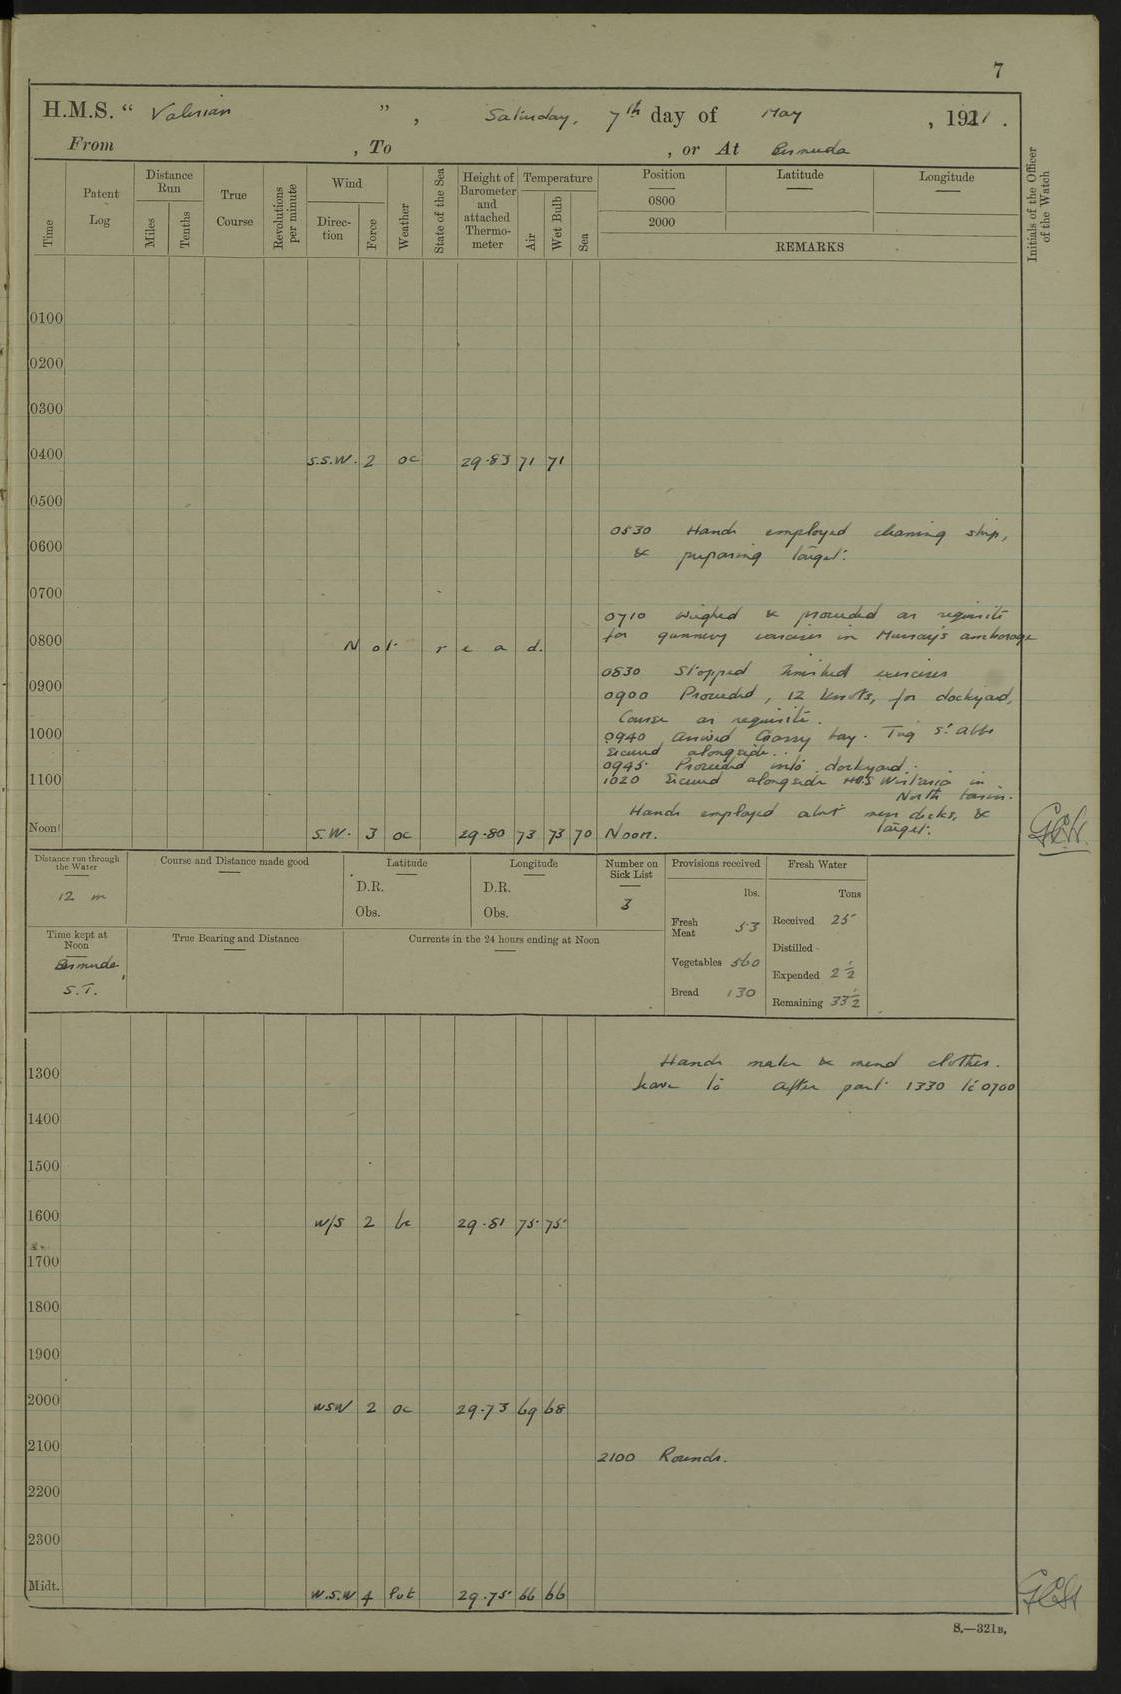 7
H.M.S. “ Valerian ” , Saturday, 7th day of May , 1921 .
From , To , or At Bermuda
Time
Patent Log
Distance Run
Miles
Tenths
True Course
Revolutions per minute
Wind
Direction
Force
Weather
State of the Sea
Height of Barometer and attached Thermometer
Temperature
Air
Wet Bulb
Sea
Position
0800
2000
Latitude
Longitude
REMARKS
Initials of the Officer of the Watch
0100
0200
0300
0400 S.S.W. 2 oc 29.83 71 71
0500
0530 Hands employed cleaning ship,
0600 & preparing target.
0700
0710 Weighed & proceeded as requisite
for gunnery exercises in Murray's anchorage
0800 Not read.
0830 Stopped finished exercises
0900
0900 Proceeded, 12 knots, for dockyard,
Course as requisite.
1000
0940 arrived Grassy bay. Tug St Abbs
secured alongside.
0945 Proceeded into dockyard.
1100
1020 Secured alongside HMS Wistaria in
North basin.
Hands employed abt mess decks, &
target.
Noon S.W. 3 oc 29.80 73 73 70 Noon.
Distance run through the Water
12 m
Course and Distance made good
Latitude
D.R.
Obs.
Longitude
D.R.
Obs.
Number on Sick List
3
Provisions received
lbs.
Fresh Meat 53
Vegetables 560
Bread 130
Fresh Water
Tons
Received 25
Distilled
Expended 2½
Remaining 33½
Time kept at Noon
Bermuda
S.T.
True Bearing and Distance
Currents in the 24 hours ending at Noon
Hands make & mend clothes.
1300
Leave to after part 1330 to 0700
1400
1500
1600 W/S 2 bc 29.81 75 75
1700
1800
1900
2000 WSW 2 oc 29.73 69 68
2100
2100 Rounds.
2200
2300
Midt. W.S.W 4 29.75 66 66
S.—321B.